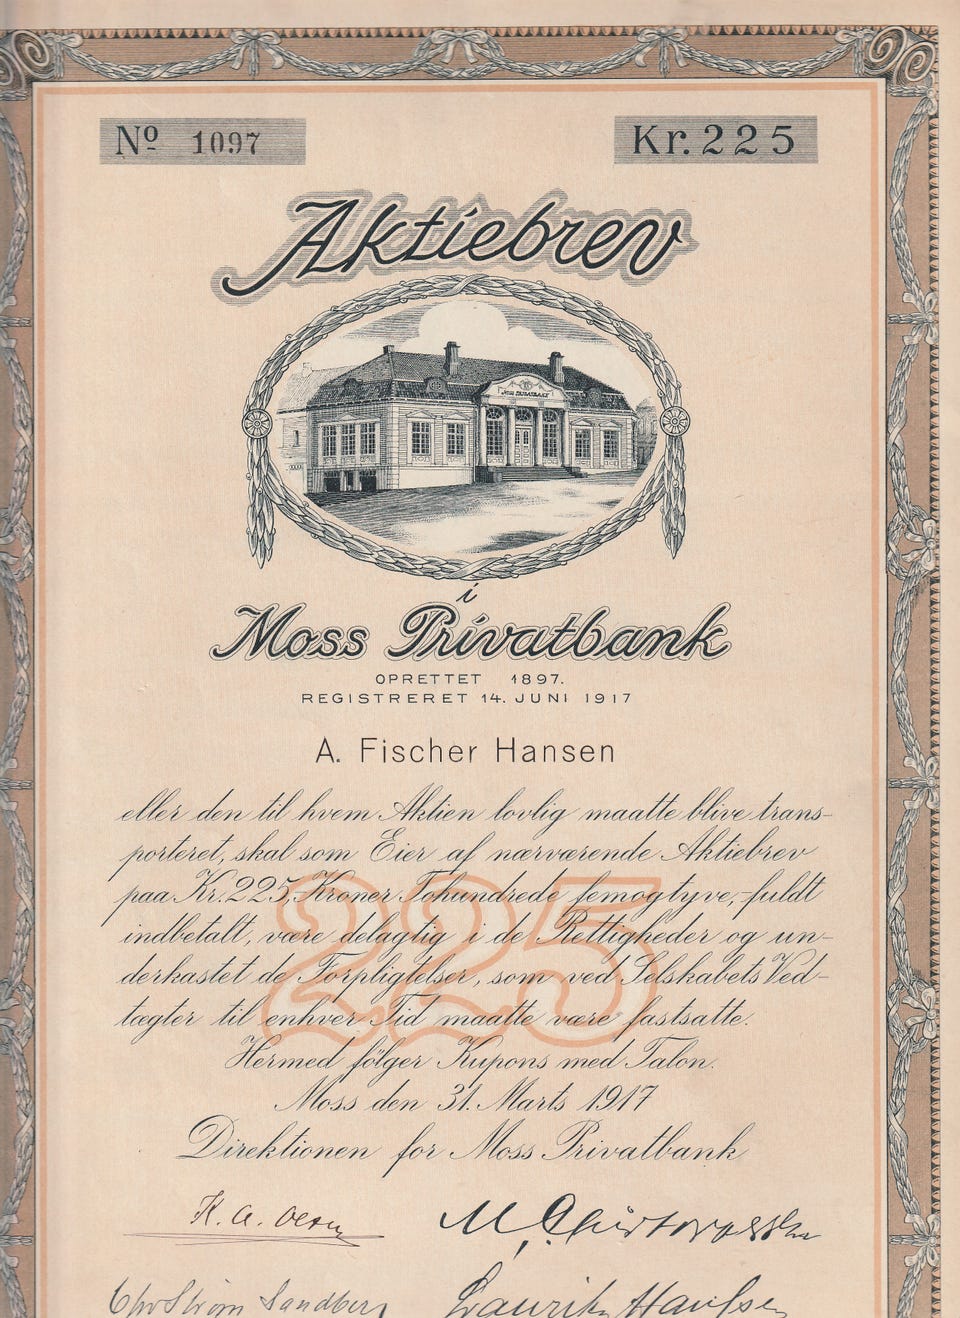 No 1097
Kr. 225
Aktiebrev
MOSS PRIVATBANK
i
Moss Privatbank
OPRETTET 1897.
REGISTRERET 14. JUNI 1917
A. Fischer Hansen
eller den til hvem Aktien lovlig maatte blive trans-
porteret, skal som Eier af nærværende Aktiebrev
paa Kr. 225, Kroner Tohundrede femogtyve,- fuldt
indbetalt, være delagtig i de Rettigheder og un-
derkastet de Forpligtelser, som ved Selskabets Ved-
tægter til enhver Tid maatte være fastsatte.
225
Hermed følger Kupons med Talon.
Moss den 31. Marts 1917
Direktionen for Moss Privatbank
K. A. Olsen
M. Christophersen
Chr Strøm Sandberg
Lauritz Hanssen